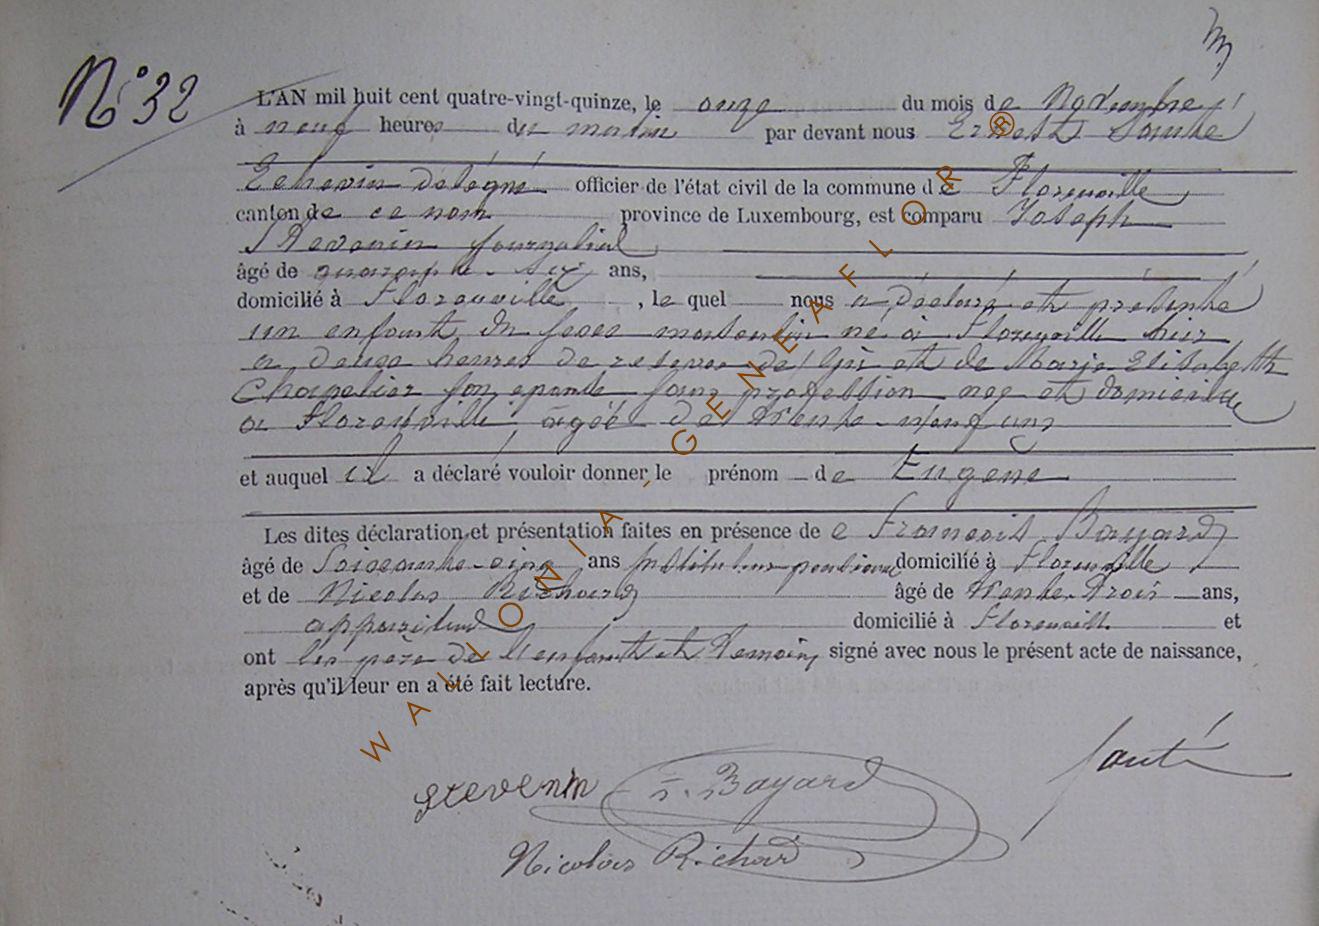 N° 32
L'AN mil huit cent quatre-vingt-quinze, le onze du mois de Novembre
à neuf heures du matin par devant nous Ernest Santé
Echevin délégué officier de l'état civil de la commune de Florenville
canton de ce nom province de Luxembourg, est comparu Joseph
Stevenin journalier
âgé de quarante-six ans,
domicilié à Florenville, le quel nous a déclaré et présenté
un enfant du sexe masculin né à Florenville hier
a deux heures de relevée de lui et de Marie Elisabeth
Chapelier son épouse sans profession née et domiciliée
a Florenville âgée de trente-neuf ans
et auquel il a déclaré vouloir donner le prénom de Eugène
Les dites déclaration et présentation faites en présence de François Bayard
âgé de Soixante-cinq ans Instituteur pensionné domicilié à Florenville
et de Nicolas Richard âgé de trente-trois ans,
appariteur domicilié à Florenville et
ont les père de l'enfant et témoins signé avec nous le présent acte de naissance,
après qu'il leur en a été fait lecture.
Santé
Stevenin F. Bayard
Nicolas Richard
WALLONIA - GENEAFLOR ®